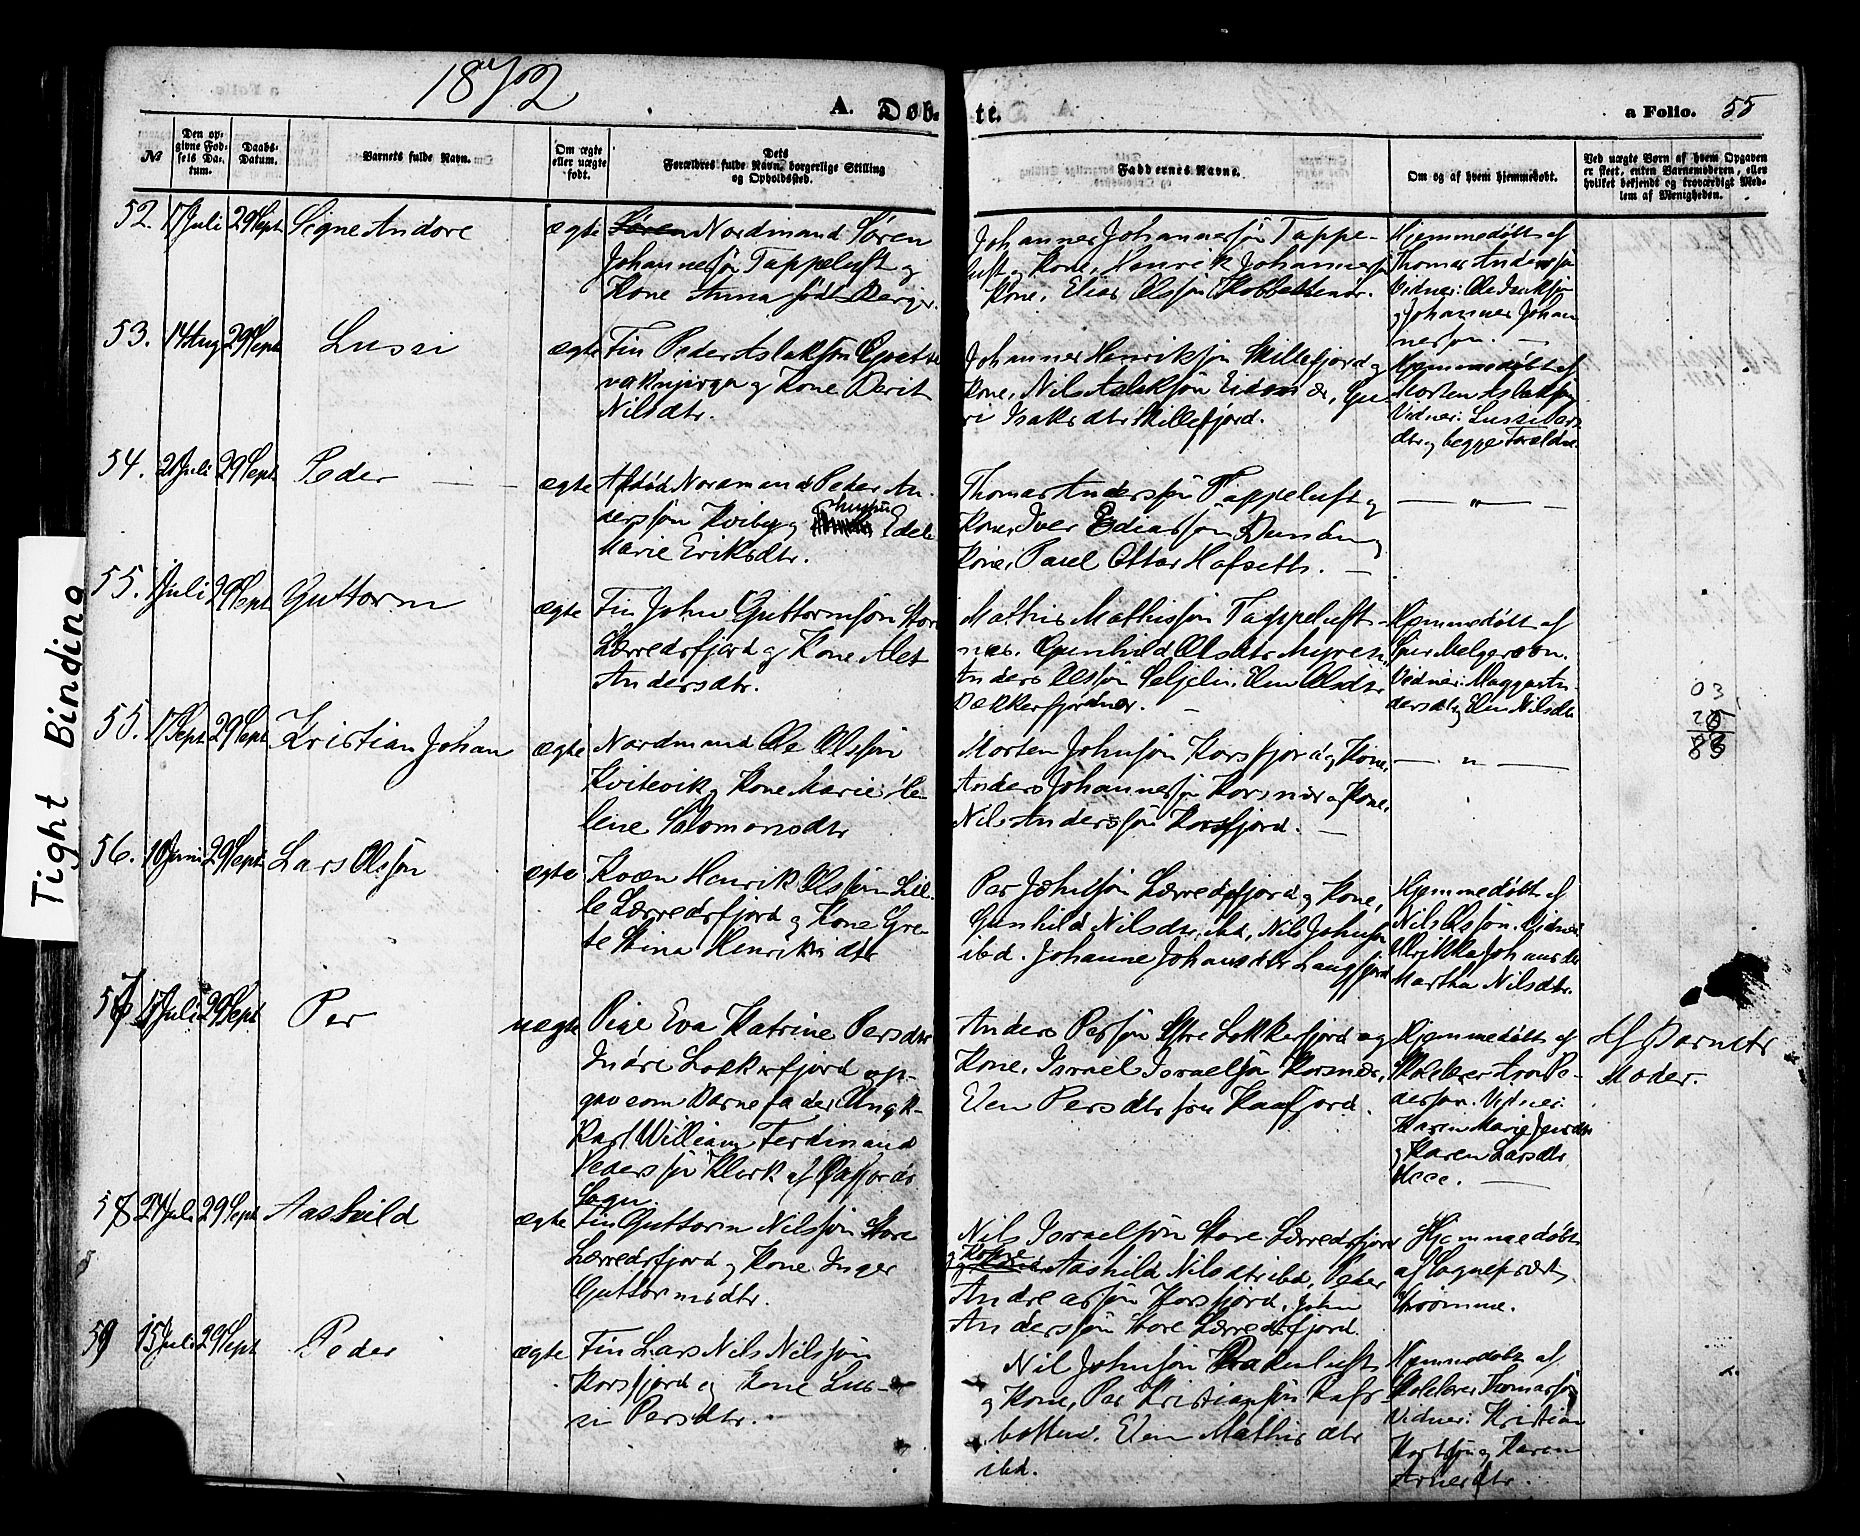 1872
A. Døb- te.
a Folio. 55
№
Den opgivne Fødsels Datum.
Daabs-Datum.
Barnets fulde Navn.
Om ægte eller uægte født.
Dets Forældres fulde Navn, borgerlige Stilling og Opholdssted.
Faddernes Navne.
Om og af hvem hjemmedøbt.
Ved uægte Børn af hvem Opgaven er skeet, enten Barnemoderen, eller hvilket bekjendt og troværdigt Medlem af Menigheden.
52. 17 Juli 29 Sept Signe Andore ægte Søren Nordmand Søren
Johannessøn Tappeluft og
Kone Anna født Berger.
Johannes Johannessøn Tappe-
luft og Kone, Henrik Johannessøn
Kone, Elias Olssøn
Hjemmedøbt af
Thomas Anderssøn
Vidner: Ole Isaksøn
og Johannes Johan
nesson. —
53. 14 Aug 29 Sept Lussi ægte Fin Peder Aslaksøn
og Kone Berit
Nilsdtr.
Johannes Henriksøn Skillefjord og
Kone, Nils Aslaksøn Gu-
ri Isaksdtr Skillefjord.
Hjemmedøbt af
Morten Aslaksøn
Vidner: Lussi Lars
dtr og begge Forældre
54. 21 Juli 29 Sept Peder — — ægte Afdød Nordmand Peder An-
derssøn Kviby og Edel
Marie Eriksdtr.
Thomas Anderssøn Tappeluft og
Kone, Iver Ediassøn og
Kone, Paul Ottar Hafseth. —
— " —
55. 1 Juli 29 Sept Guttorm ægte Fin John Guttormsøn Store
Lærredsfjord og Kone Alet
Andersdtr.
Mathis Mathissøn Tappeluft-
næs. Gunhild Olsdtr
Anders Olssøn Elen Olsdtr
Hjemmedøbt af
Vidner: Magga An-
dersdtr og Elen Nilsdtr
03
83
55. 17 Sept 29 Sept Kristian Johan ægte Nordmand Ole Olssøn
Kvitevik og Kone Marie He-
lene Salomonsdtr
Morten Johnsøn Korsfjord og Kone,
Anders Johannessøn Korsnæs og Kone,
Nils Anderssøn Korsfjord. —
— " —
56. 10 Juni 29 Sept Lars Olssøn ægte Kvæn Henrik Olssøn Lil-
le Lærredsfjord og Kone Gre-
te Stina Henriksdtr
Per Johnsøn Lærredsfjord og Kone,
Gunhild Nilsdtr ibd, Nils Johnsøn
ibd. Johanne Johansdtr Langfjord
Hjemmedøbt af
Nils Olssøn. Vidner
Ulrikka Johansdtr
Martha Nilsdtr.
57 17 Juli 29 Sept Per uægte Pige Eva Katrine Persdtr
Indre Lokkerfjord op-
gav som Barnefader Ungk.
Karl William Ferdinand
Pederssøn Klerk af
Sogn.
Anders Persøn Lokkerfjord og
Kone, Israel Israelsøn Korsnæs,
Elen Persdtr Kaafjord.
Hjemmedøbt af
Skolelærer Aron Pe-
dersøn. Vidner:
Karen Marie Jensdtr
og Karen Larsdtr
—
Af Barnets
Moder.
58 27 Juli 29 Sept Aashild ægte Fin Guttorm Nilssøn Store
Lærredsfjord og Kone Inger
Guttormsdtr.
Nils Israelsøn Store Lærredsfjord
og Kone Aashild Nilsdtr ibd, Peder
Andreassøn Korsfjord, John
Anderssøn Store Lærredsfjord.
Hjemmedøbt
af Sognepræst
Strømme.
59 15 Juli 29 Sept Peder ægte Fin Lars Nils Nilssøn
Korsfjord og Kone Lus-
si Persdtr.
Nils Johnsøn
og Kone, Per Kristiansøn Rafs-
botten. Elen Mathisdtr
ibd.
Hjemmedøbt af
Skolelærer Thomassøn
Vidner: Kristian
og Karen
Tight Binding